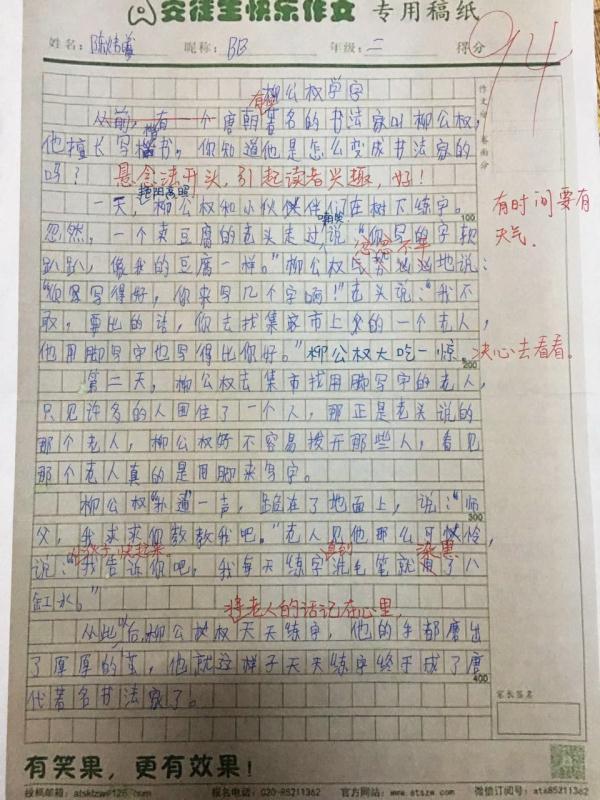 安徒生快乐作文 专用稿纸
姓名： 昵称：BB 年级：二 得分 94
作文分 卷面分
柳公权学字
从前，有一个唐朝著名的书法家叫柳公权，
有位
他擅长写楷书。你知道他是怎么变成书法家的
楷
吗？ 悬念法开头，引起读者兴趣，好！
艳阳高照
一天，柳公权和小伙伴们在树下练字。
100
有时间要有天气。
嘲笑
忽然，一个卖豆腐的老头走过说："你写的字软
忿忿不平
趴趴，像我的豆腐一样。"柳公权气势汹汹地说：
"你写得好，你来写几个字啊！"老头说："我不
敢，要比的话，你去找集市上的一个老人，
他用脚写字也写得比你好。"柳公权大吃一惊。决心去看看。
200
第二天，柳公权去集市找用脚写字的老人，
只见许多的人围住了一个人，那正是老头说的
那个老人，柳公权好不容易拨开那些人，看见
那个老人真的是用脚来写字。
柳公权"扑通"一声，跪在了地面上，说："师
300
父，我求求你教教我吧。"老人见他那么可怜，
快起来。
说："我告诉你吧，我每天练字洗毛笔就用了八
缸水。"
将老人的话记在心里，
从此以后，柳公权天天练字，他的手都磨出
了厚厚的茧，他就这样子天天练字终于成了唐
400
代著名书法家了。
家长签名
有笑果，更有效果！
投稿邮箱：atsktzw@126.com 报名电话：020-85211362 官方网站：www.atszw.com 微信订阅号：ats85211362